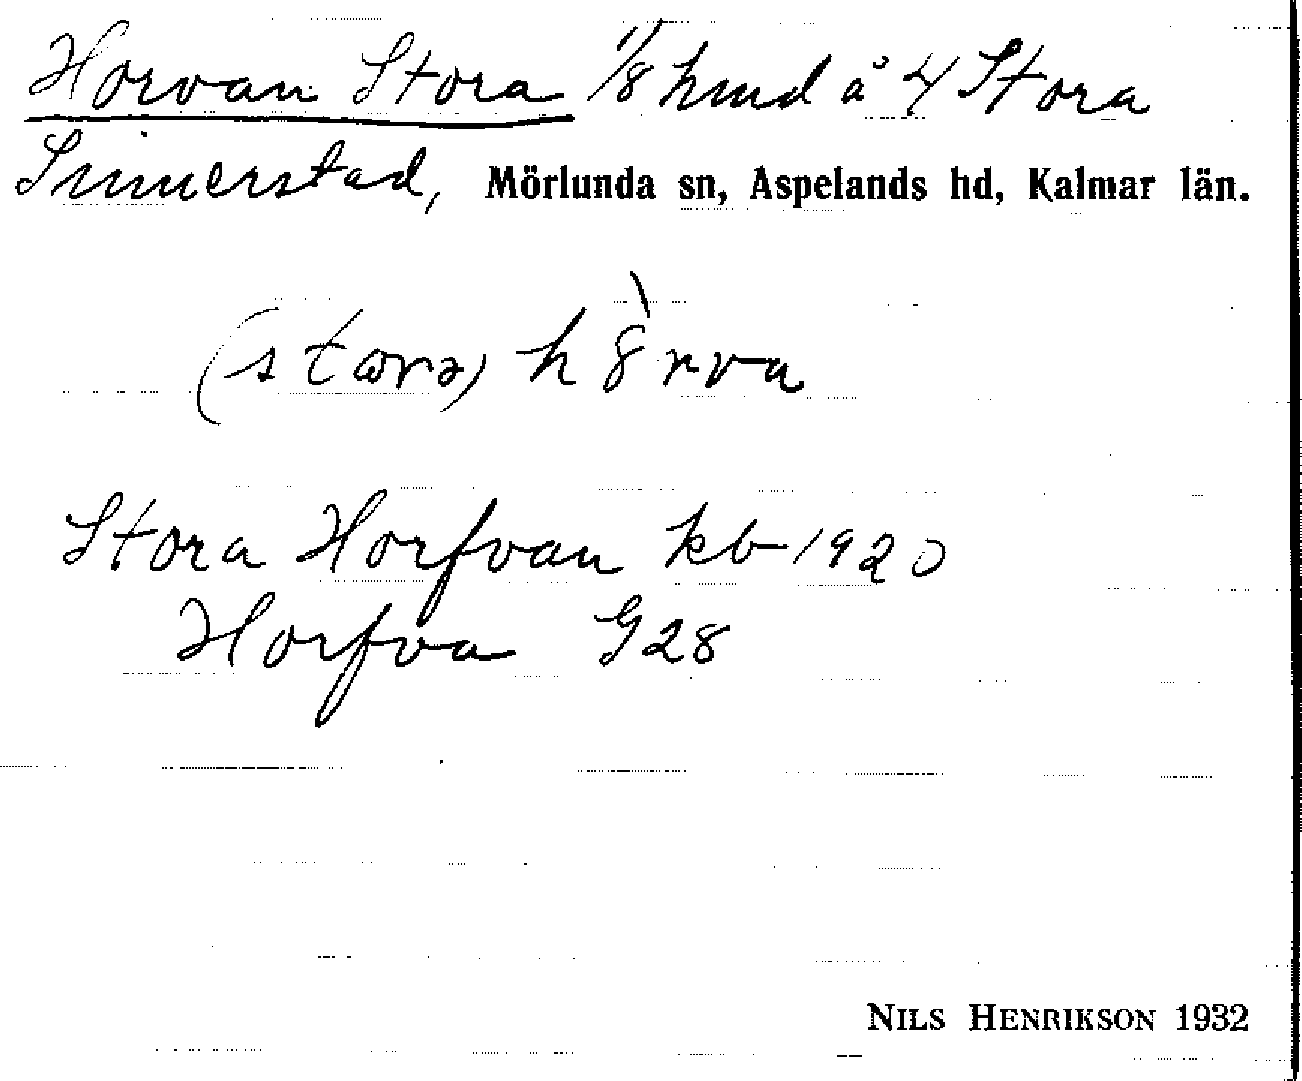 Horvan Stora 1/8 hmd å 4 Stora
Simmerstad, Mörlunda sn, Aspelands hd, Kalmar län.
(stωrə) h8̀rva
Stora Horfvan kb 1920
Horfva G28
NILS HENRIKSON 1932